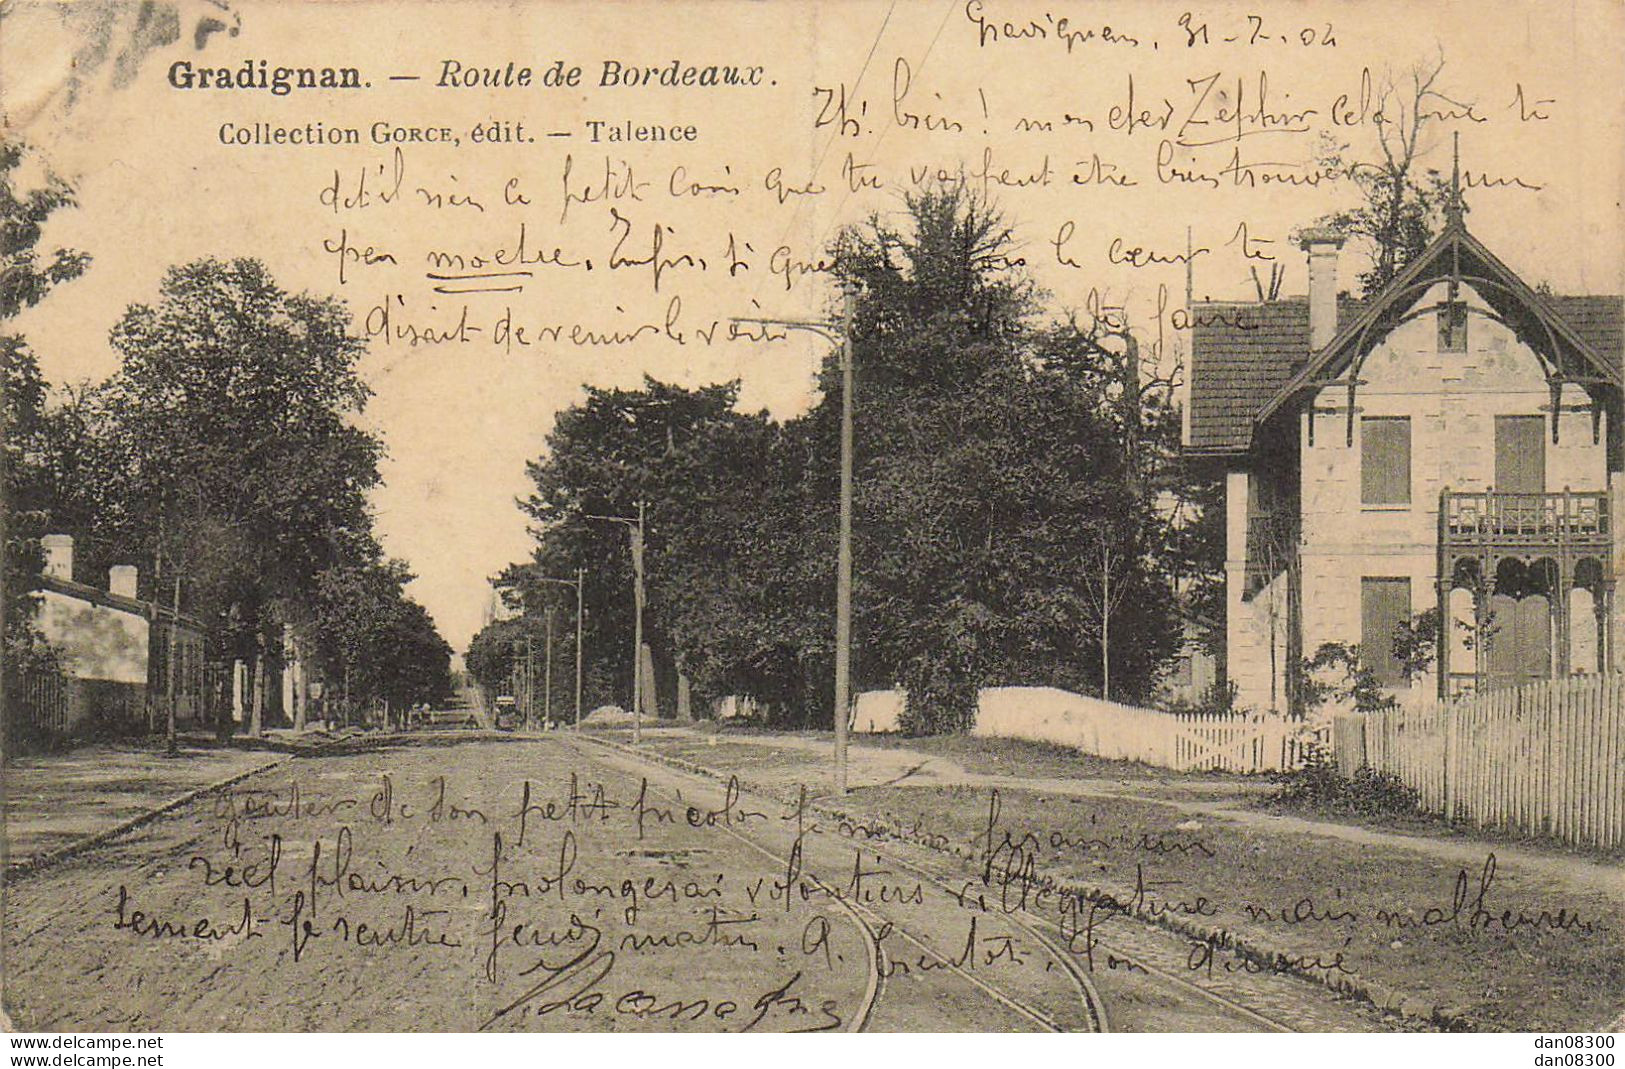 Gradignan, 31-7-04
Gradignan. — Route de Bordeaux.
Collection GORCE, édit. — Talence
Eh! bien! mon cher Zéphir cela ne te
dit-il rien ce petit coin que tu vas peut être bien trouver un
peu moche. Enfin, si quelque fois le cœur te
disait de venir le voir et de te faire
goûter de bon petit picolo je m'en ferais un
réel plaisir, prolongerai volontiers villégiature mais malheureu
sement je rentre jeudi matin. A bientôt, ton dévoué
Lacassagne
www.delcampe.net
www.delcampe.net
dan08300
dan08300